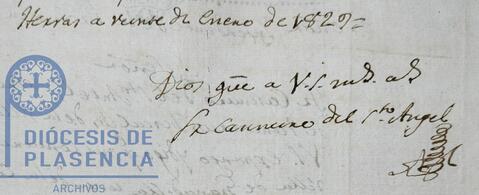 Hervas a veinte de Enero de 1829=
Dios gũe a V.S. ms. as.
Fr Cammino del Sto Angel
DIÓCESIS DE
PLASENCIA
ARCHIVOS